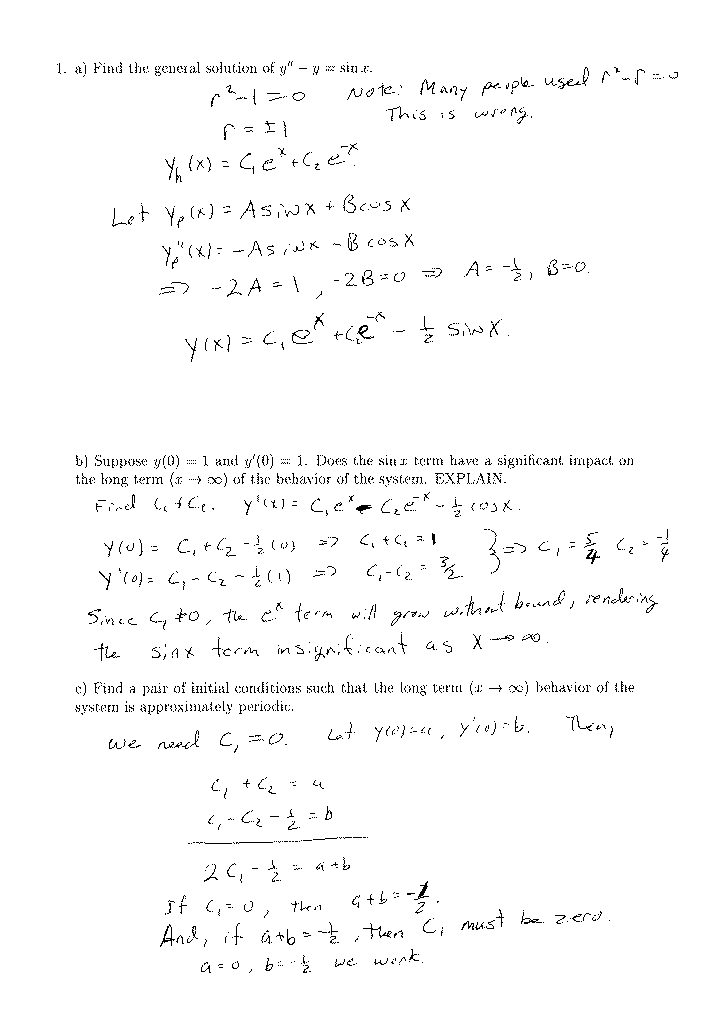 1. a) Find the general solution of y″ − y = sin x.
r² − 1 = 0 Note: Many people used r² − r = 0
This is wrong.
r = ±1
y_h(x) = C₁e^x + C₂e^−x.
Let y_p(x) = A sin x + B cos x
y_p″(x) = −A sin x − B cos x
⇒ −2A = 1, −2B = 0 ⇒ A = −1/2, B = 0.
y(x) = C₁e^x + C₂e^−x − 1/2 sin x.
b) Suppose y(0) = 1 and y′(0) = 1. Does the sin x term have a significant impact on
the long term (x → ∞) of the behavior of the system. EXPLAIN.
Find C₁ & C₂. y′(x) = C₁e^x − C₂e^−x − 1/2 cos x.
y(0) = C₁ + C₂ − 1/2(0) ⇒ C₁ + C₂ = 1
y′(0) = C₁ − C₂ − 1/2(1) ⇒ C₁ − C₂ = 3/2 } ⇒ C₁ = 5/4 C₂ = −1/4
Since C₁ ≠ 0, the e^x term will grow without bound, rendering
the sin x term insignificant as x → ∞.
c) Find a pair of initial conditions such that the long term (x → ∞) behavior of the
system is approximately periodic.
We need C₁ = 0. Let y(0) = a, y′(0) = b. Then,
C₁ + C₂ = a
C₁ − C₂ − 1/2 = b
2C₁ − 1/2 = a + b
If C₁ = 0, then a + b = −1/2.
And, if a + b = −1/2, then C₁ must be zero.
a = 0, b = −1/2 we work.